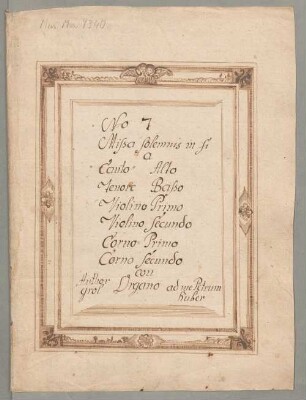 Mus. Ms. 1340
No 7
Missa Solemnis in F
a
Canto Alto
Tenore Basso
Violino Primo
Violino Secundo
Corno Primo
Corno Secundo
con
Organo
ad me Petrum
Huber